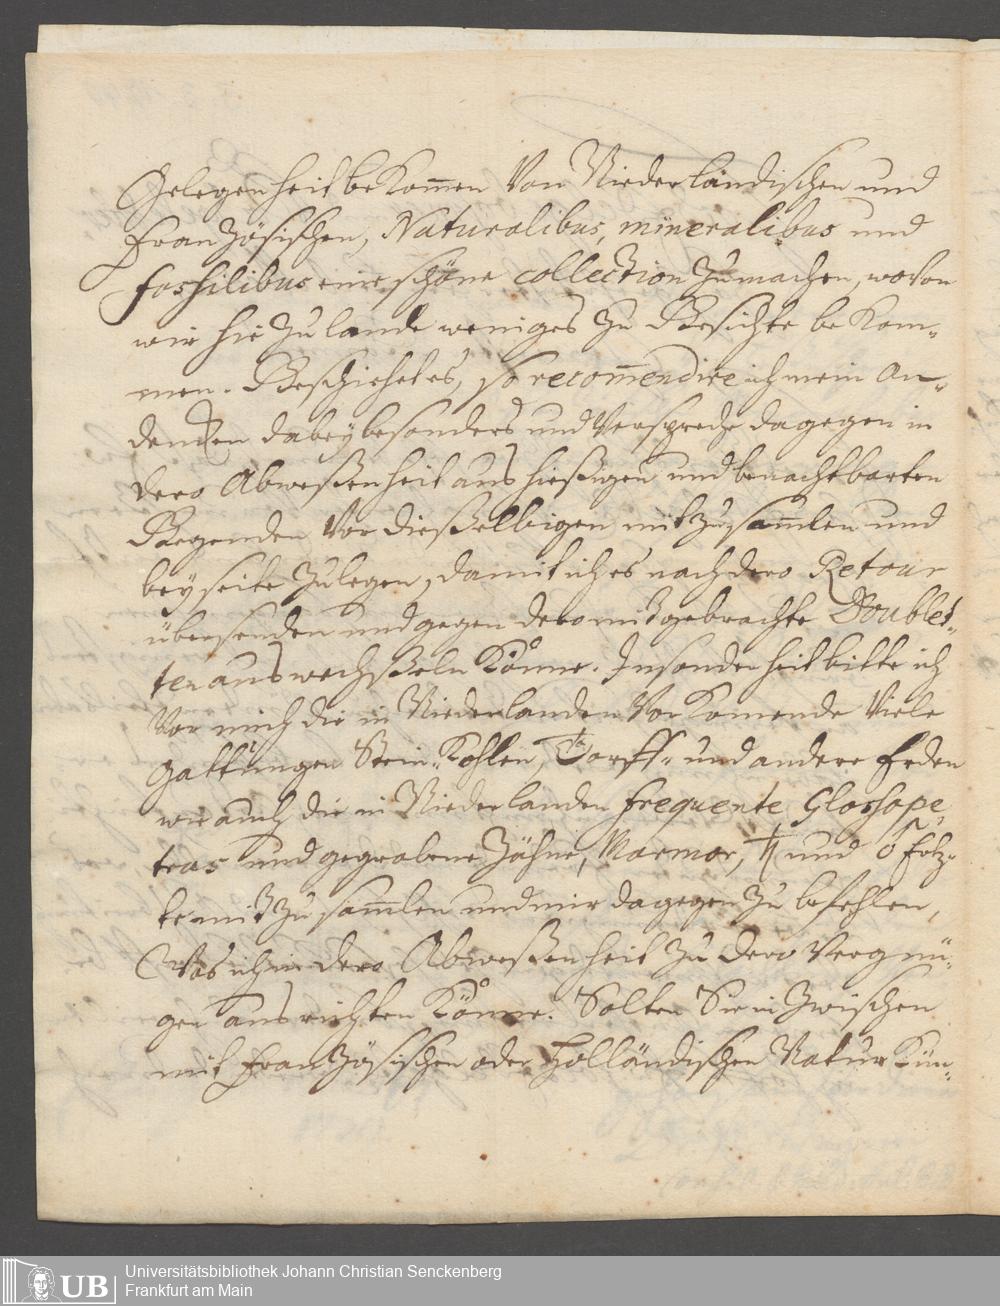 Gelegenheit bekom̄en Von Niederländischen und
Französischen, Naturalibus, mineralibus und
fossilibus eine schöne collection zu machen, wovon
wir hie zu lande weniges zu Gesichte bekom-
men. Geschiehet es, so recom̄endire ich mein An-
dencken dabey besonders und Verspreche dagegen in
dero Abweßenheit aus hießigen und benachtbarten
Gegenden Vor dieselbigen mit zu sam̄len und
bey seite zu legen, damit ich es nach dero Retour
übersenden und gegen dero mitgebrachte Doublet-
ten auswechßeln Könne. Insonderheit bitte ich
Vor mich die in Niederlanden Vorkomende Viele
gattungen Stein-Kohlen, Torff- und andere Erden
wie auch die in Niederlanden frequente Glossope-
tras und gegrabene Zähne, Marmor, ♄ und ♂ Ertz-
te mit zu sam̄len und mir dagegen zu befehlen,
Was ich in dero Abweßenheit zu dero Vergnü-
gen ausrichten Könne. Solten Sie in zwischen
mit Französischen oder Holländischen Natur Kün-
UB
Universitätsbibliothek Johann Christian Senckenberg
Frankfurt am Main